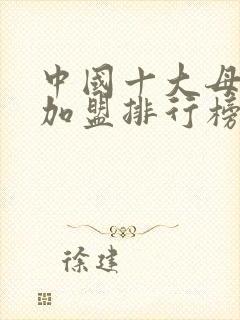 中國十大母
加盟排行榜
徐建